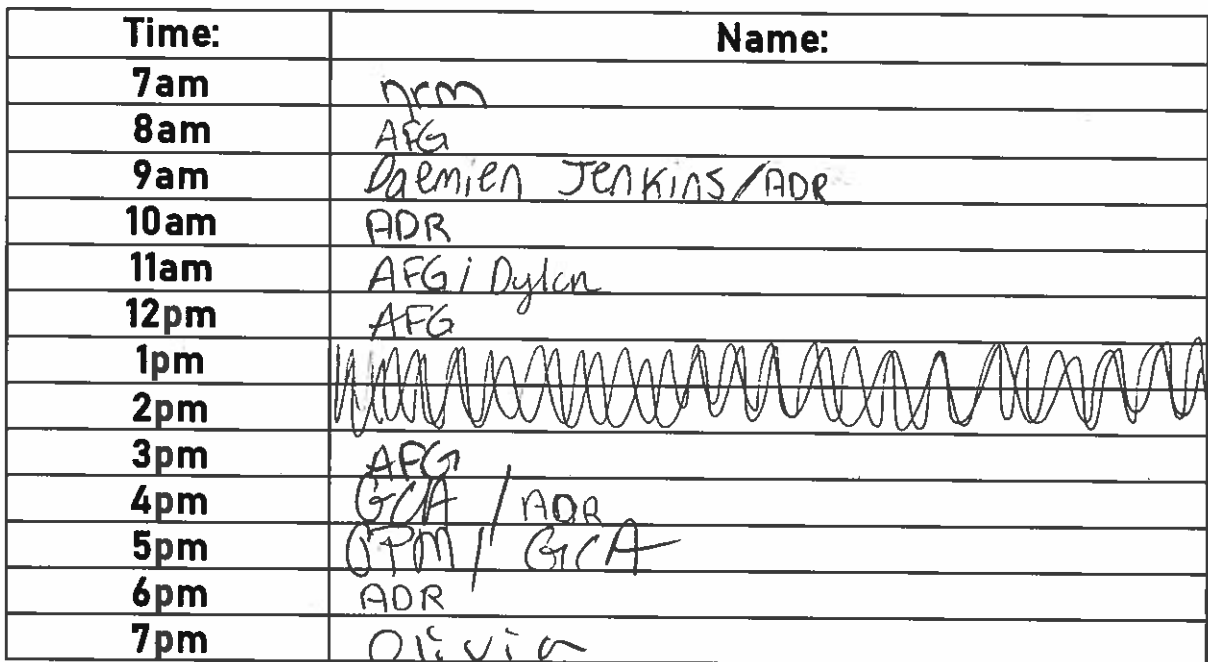 Time: Name:
7am nrm
8am AFG
9am Daemien Jenkins/ADR
10am ADR
11am AFG / Dylan
12pm AFG
1pm
2pm
3pm AFG
4pm GCA / ADR
5pm JPM / GCA
6pm ADR
7pm Olivia